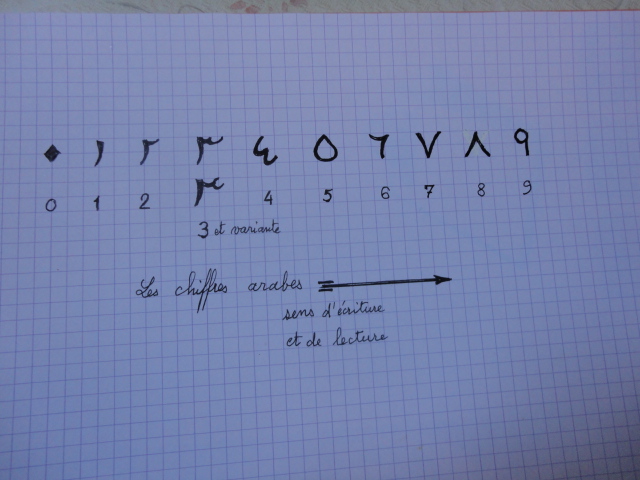 ٠ ١ ٢ ٣ ٤ ٥ ٦ ٧ ٨ ٩
0 1 2 ٣ 4 5 6 7 8 9
3 et variante
Les chiffres arabes
sens d'écriture
et de lecture